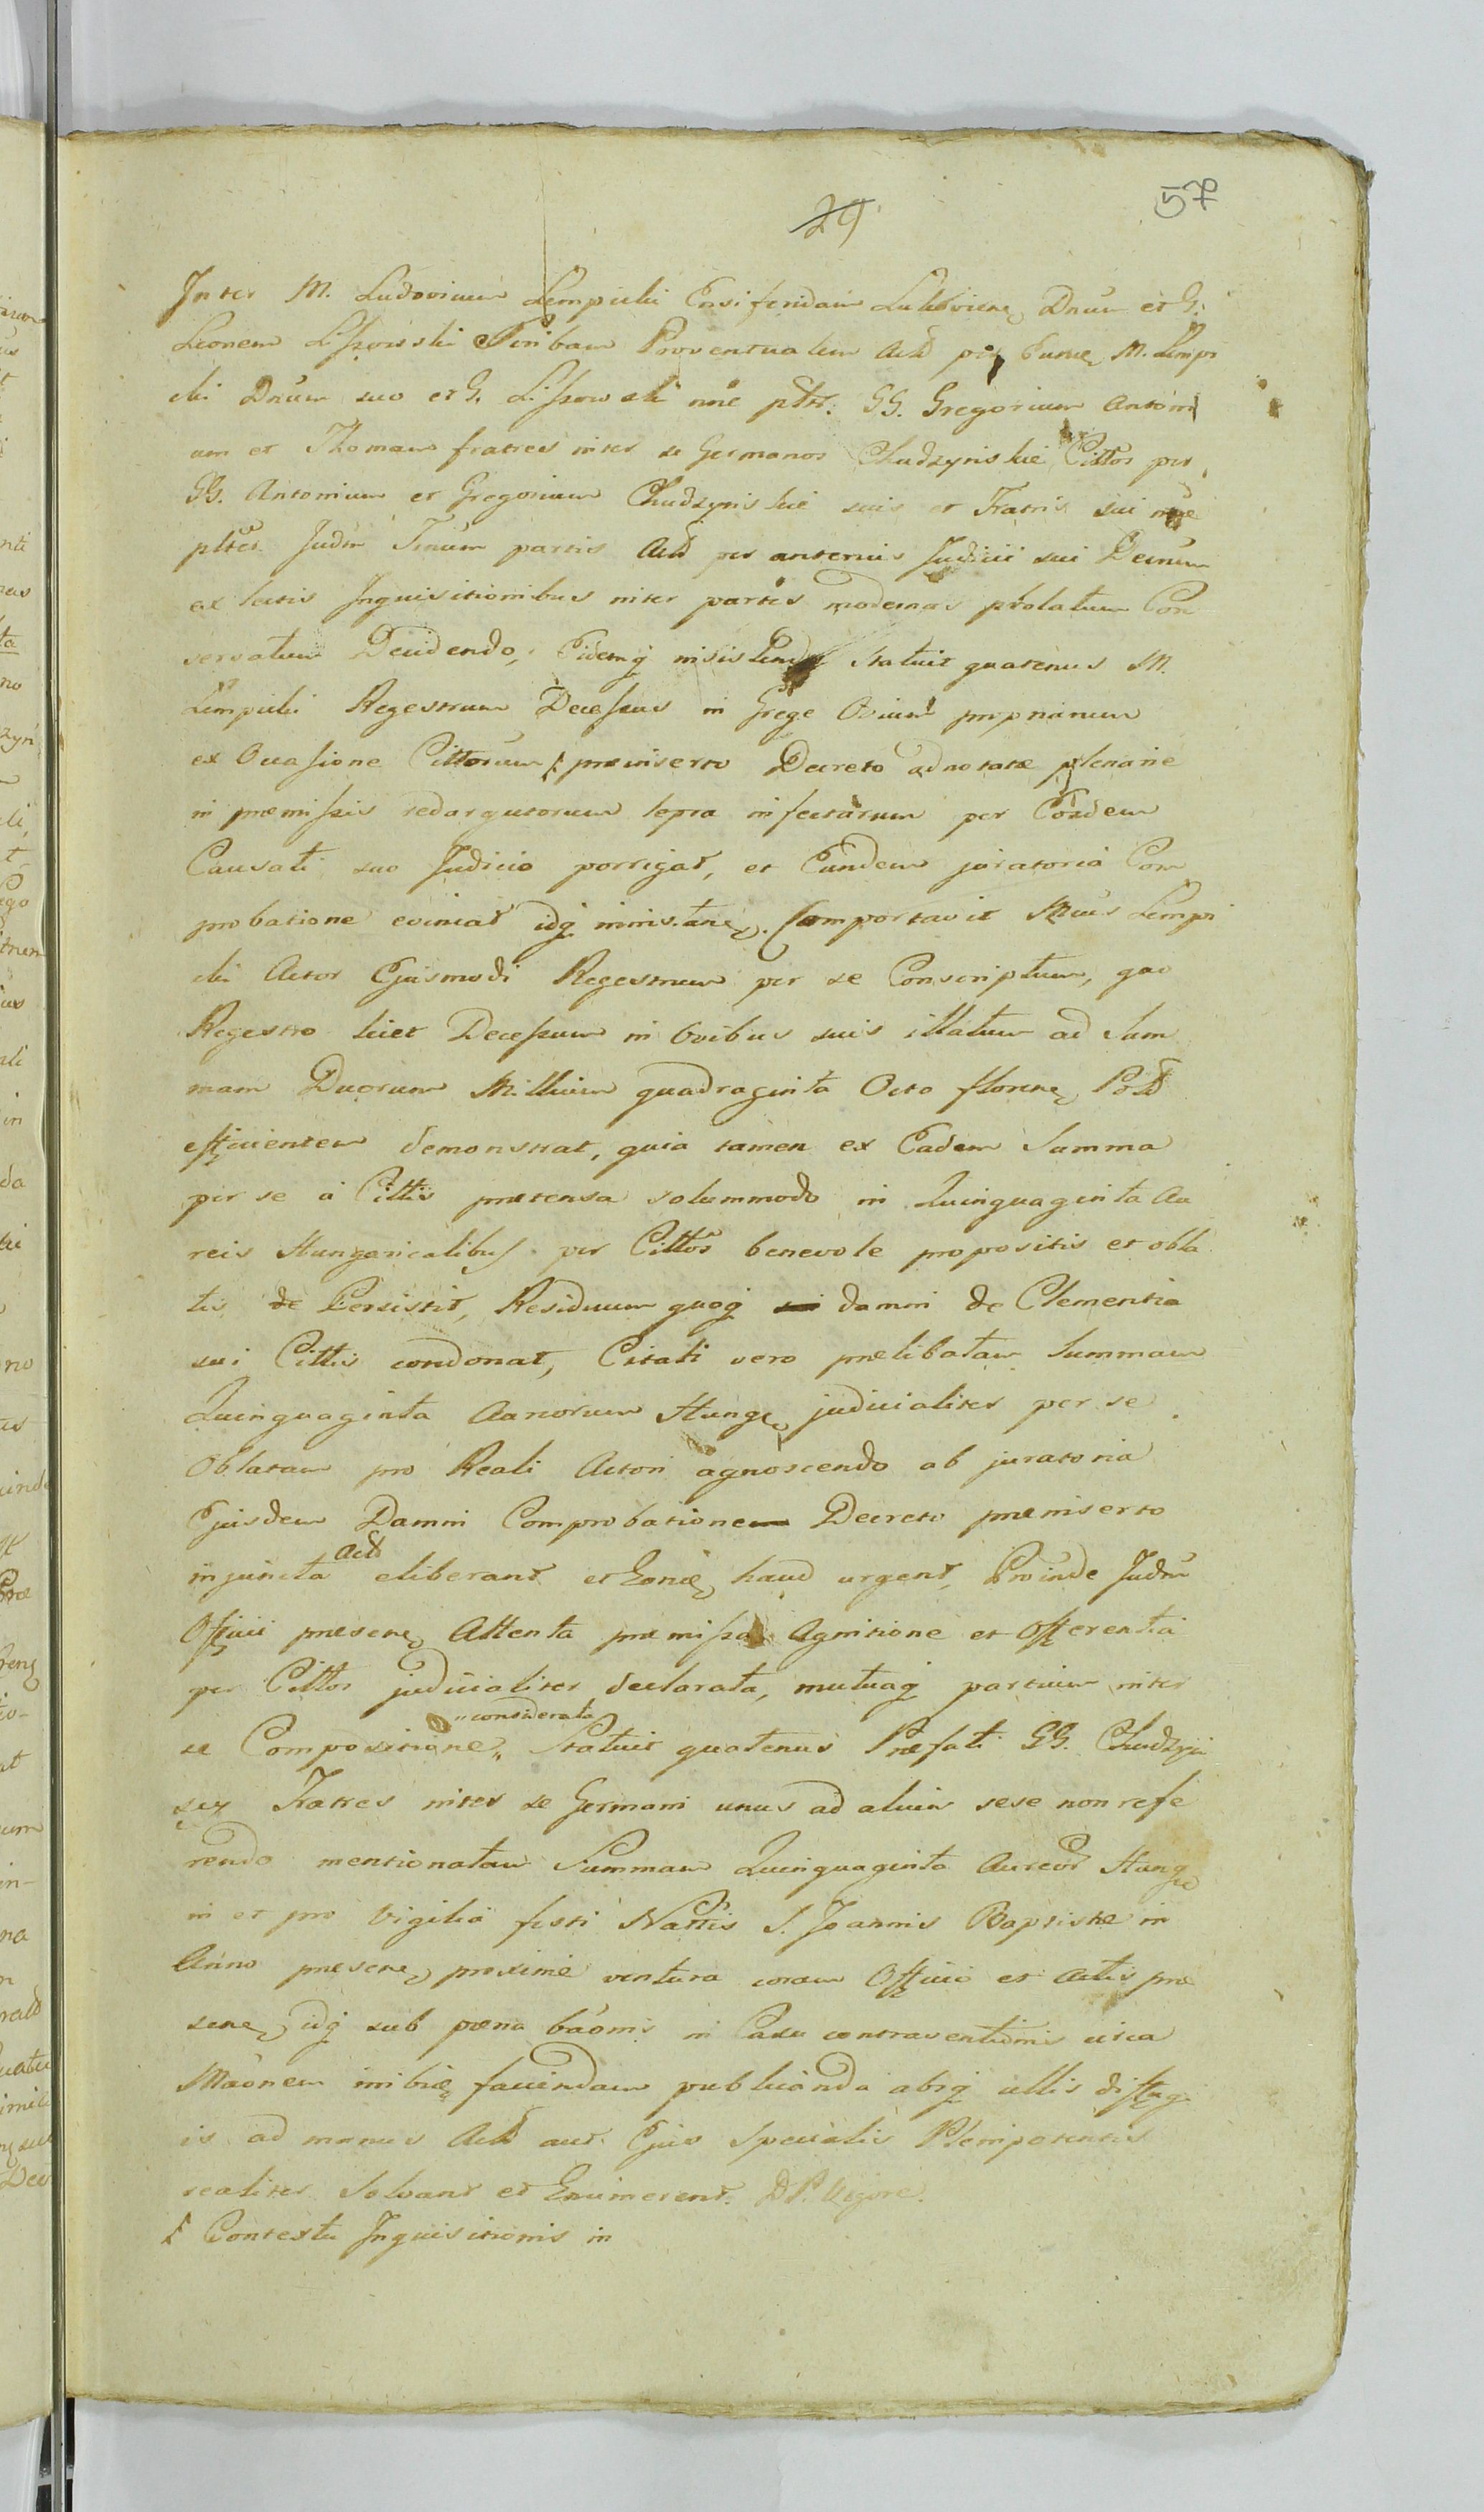 29
57
Inter M. Ludovicum Lempicki Ensiferidam Dnum et G.
Leonem Liszowski Scribam Proventualem Actt per Eunde M. Lempi
cki Dnum suo et G. Liszowski nne pltt. GG. Gregorium Antoni
um et Thomam fratres inter se Germanos Chudzynskie Cittos per
GG. Antonium et Gregorium Chudzynskie suis et Fratris sui nne
pltes Judm Tnum partis Actt per antenus Judicii sui Decrum
ex ductis Inquisitionibus inter partes modernas prolatum Con
servatum Decidendo, Eidemq insistendo Statuit quatenus M.
Lempicki Regestrum Decessus in Grege Ovium proprianum
ex Occasione Cittorum ⁒ præinserto Decreto adnotatæ plenarie
in præmissis redargutorum lepra infectarum per Eosdem
Causati suo Judicio porrigat, et Eundem juratoria Com
probatione evincat idq Comportavit Mcus Lempi
cki Actor Ejusmodi Regestrum per se Conscriptum, quo
Regestro licet Decessum in Ovibus suis illatum ad Sum
mam Duorum Millium quadraginta Octo florene Poltt
efficientem demonstrat, quia tamen ex Eadem Summa
per se a Cittis prætensa solummodo in Quinquaginta Au
reis Hungaricalibus per Cittos benevole propositis et obla
tis de Persistit, Residuum quoq damni de Clementia
sui Cittis condonat, Citati vero prælibatam Summam
Quinquaginta Aureorum Hunge judicialiter per se
Oblatam pro Reali Actori agnoscendo ab juratoria
Ejusdem Damni Comprobatione Decreto præinserto
injuncta Actt eliberant et haud urgent, Proinde Judm
Officii præsene Attenta præmissa Agnitione et Offerentia
per Cittos judicialiter declarata, mutuaq partium inter
se Compositione „considerata Statuit quatenus Præfati GG. Chudzyn
scy Fratres inter se Germani unus ad alium sese non refe
rendo mentionatam Summam Quinquaginta Aureor Hunge
in et pro Vigilia festi Nattis S. Joannis Baptistæ in
Anno præsene proxime ventura coram Officio et Actis præ
sene, idq sub poena baonis in Casu contraventionis circa
Maonem inibiæ faciendam publicanda absq ullis diffug
is ad manus Actt aut Ejus Specialis Plenipotentis
realiter Solvant et Enumerent. D P. Vigore.
⁒ Contextu Inquisitionis in